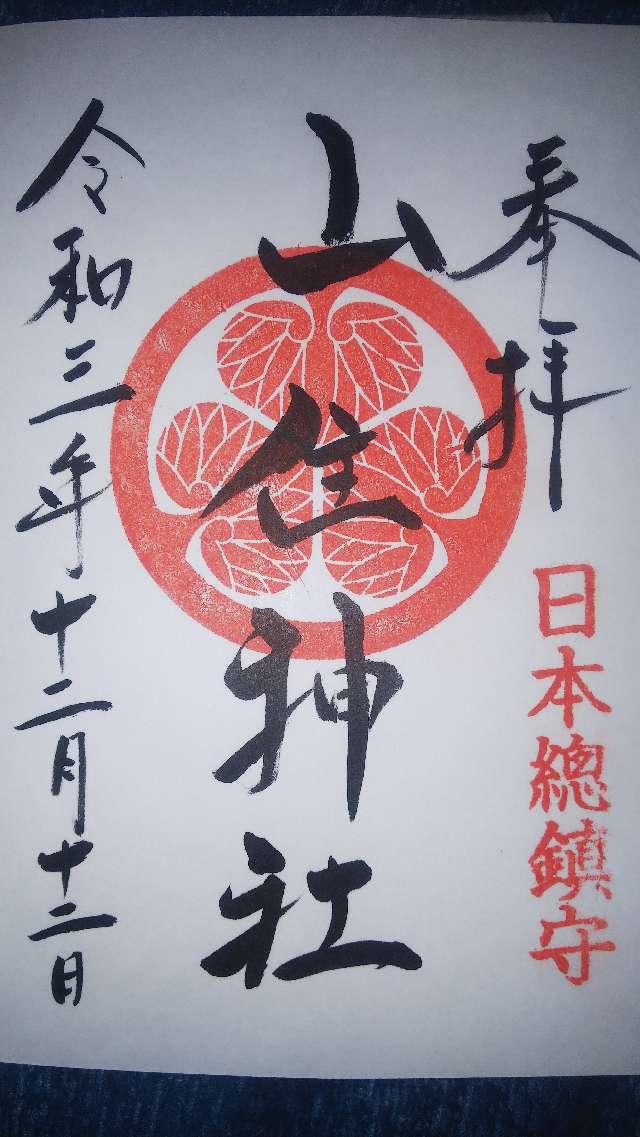 奉拝
日本總鎮守
山住神社
令和三年十二月十二日